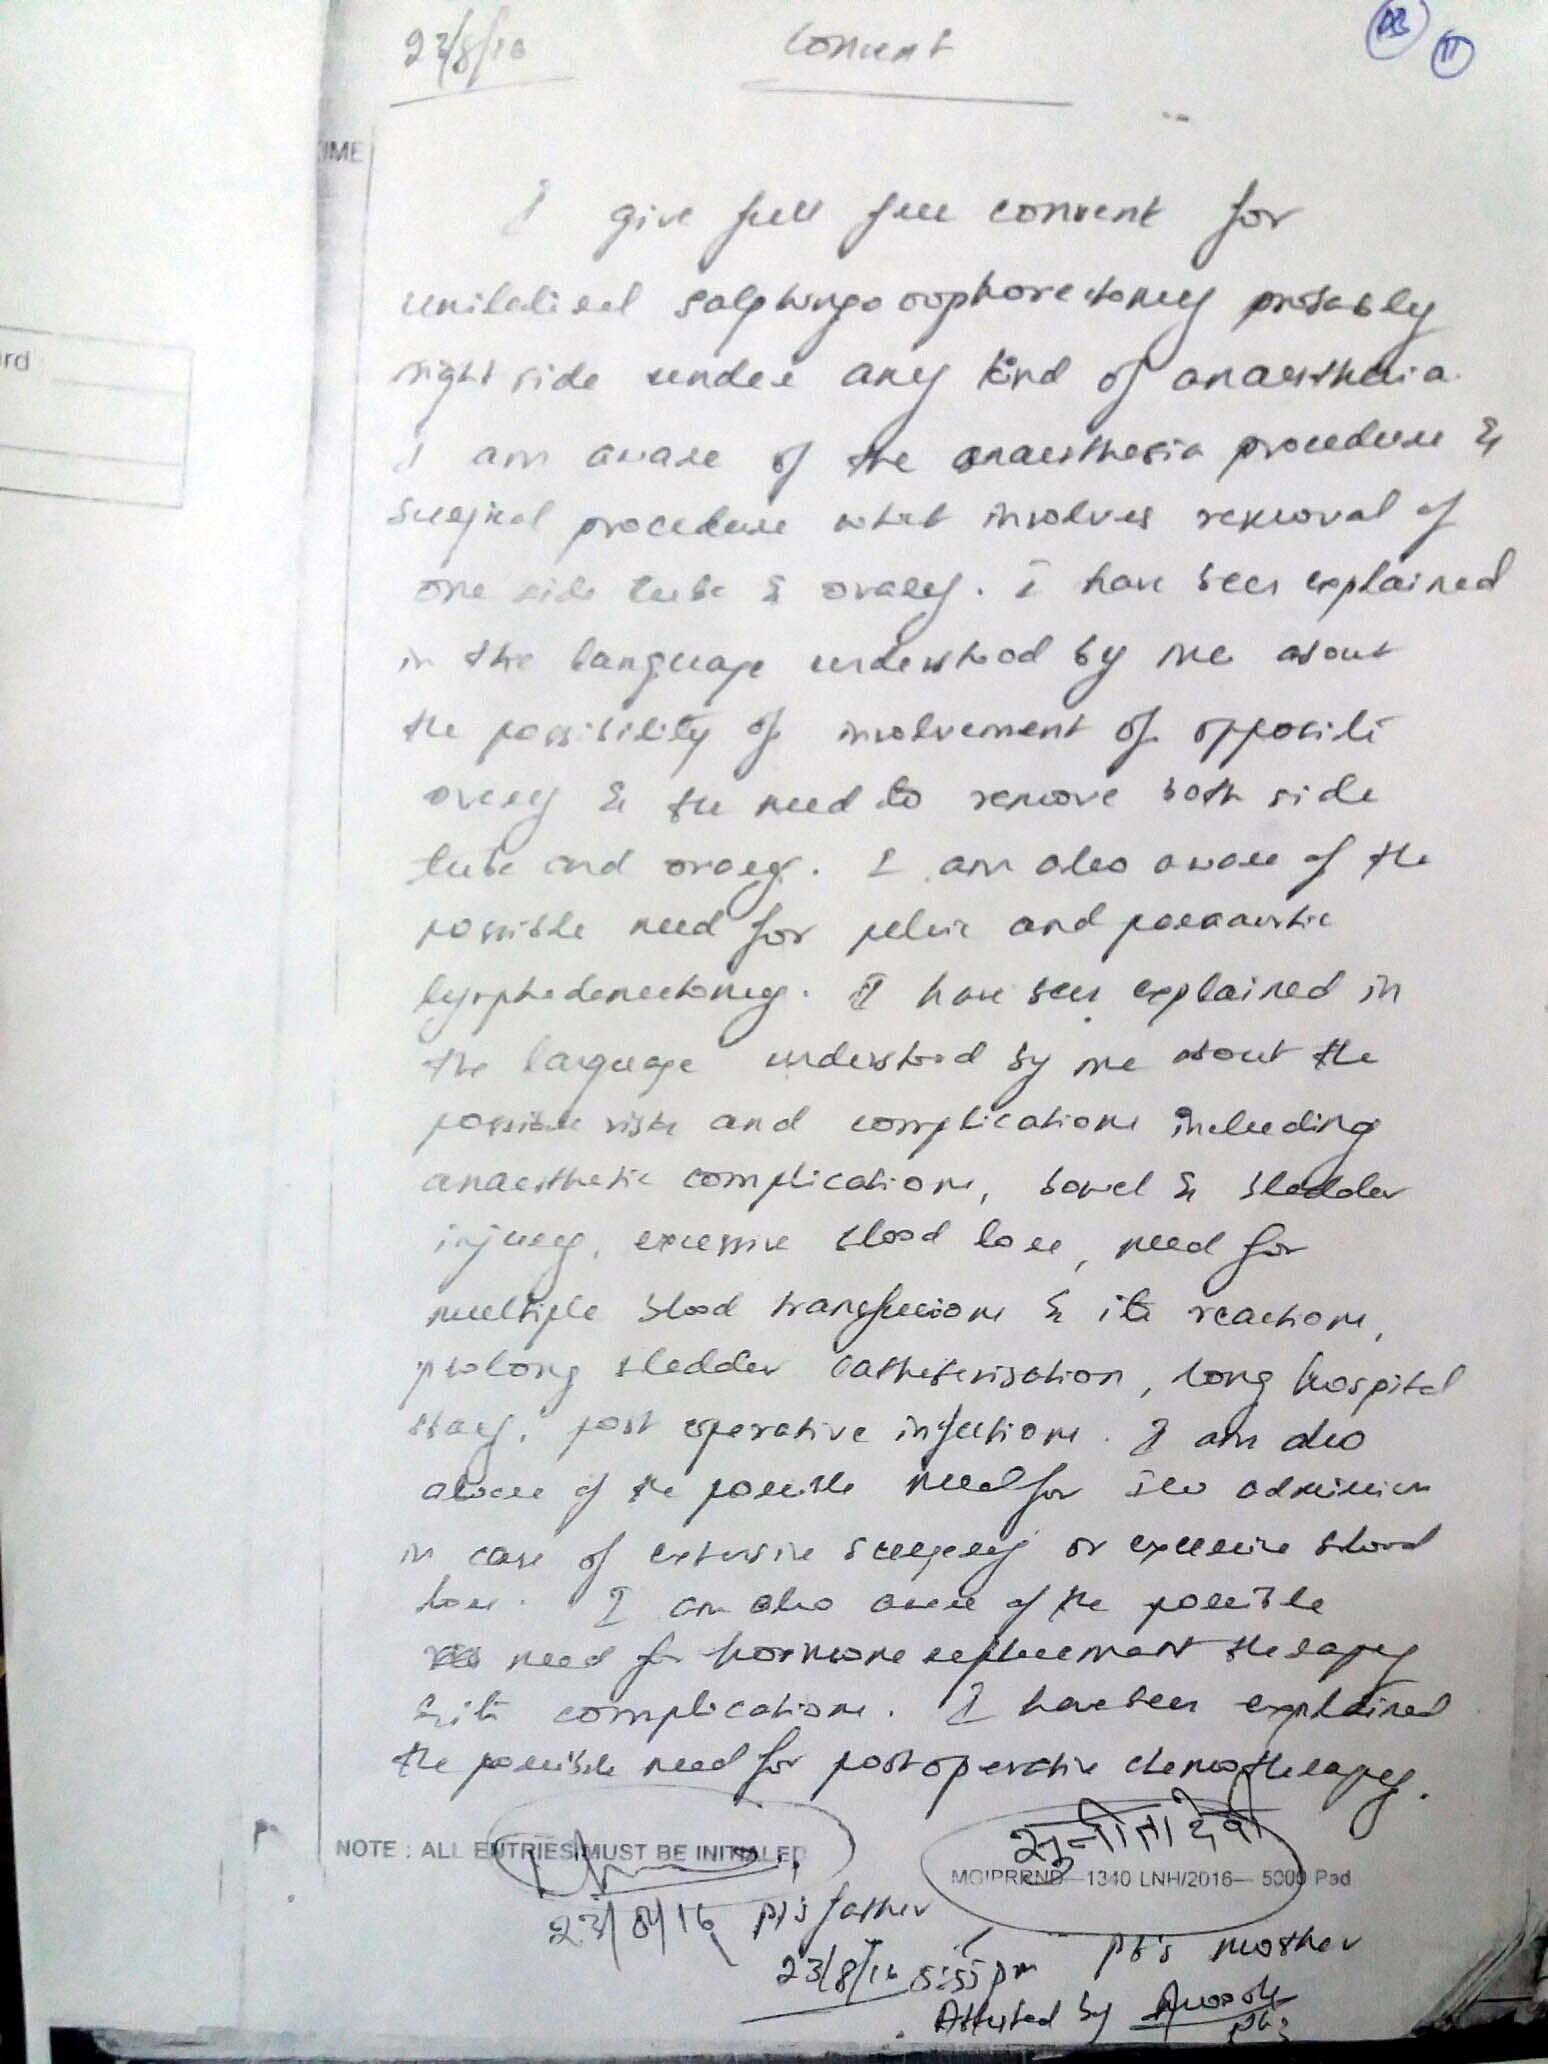 23/8/16 Consent
IME
I give full free consent for
unilateral salphingo oophorectomy probably
right side under any kind of anaesthesia.
I am aware of the anaesthesia procedure &
surgical procedure what involves removal of
rd
one side tube & ovary. I have been explained
in the language understood by me about
the possibility of involvement of opposite
ovary & the need to remove both side
tube and ovary. I am also aware of the
possible need for pelvic and paraaortic
lymphadenectomy. I have been explained in
the language understood by me about the
possible risks and complications including
anaesthetic complications, bowel & bladder
injury, excessive blood loss, need for
multiple blood transfusions & its reactions,
prolong bladder catheterisation, long hospital
stay, post operative infections. I am also
aware of the possible need for ICU admission
in case of extensive surgery or excessive blood
loss. I am also aware of the possible
need for hormone replacement therapy
& its complications. I have been explained
the possible need for postoperative chemotherapy.
NOTE : ALL ENTRIES MUST BE INITIALED
सुनीता देवी
MGIPRRND—1340 LNH/2016— 5000 Pad
23/8/16 pt's father
pt's mother
23/8/16 5:55pm
Attested by